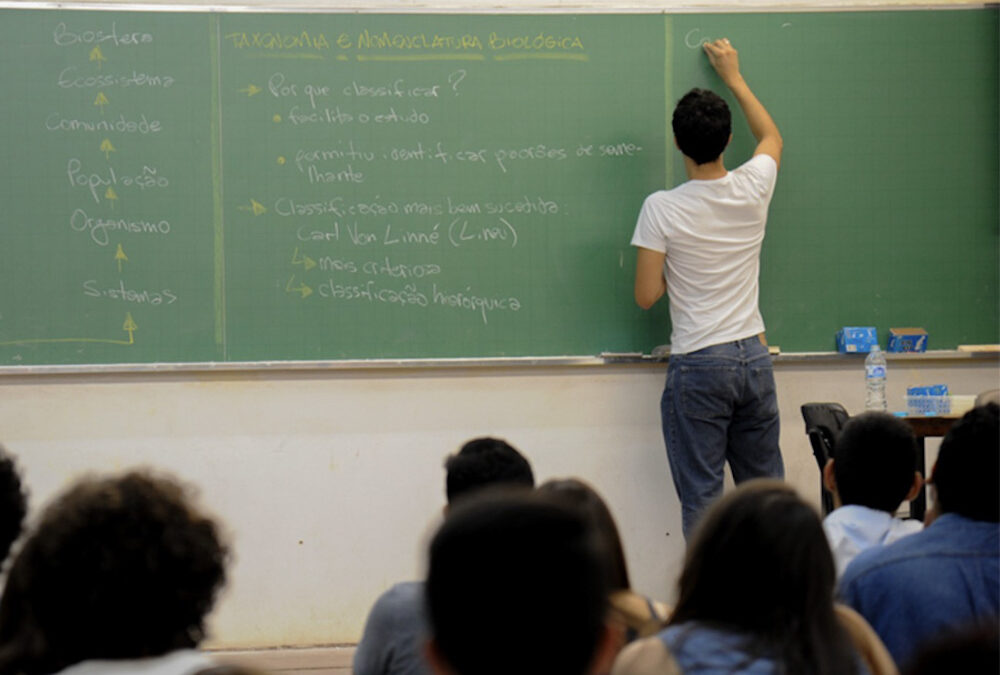 Biosfera
Ecossistema
Comunidade
População
Organismo
Sistemas
TAXONOMIA E NOMENCLATURA BIOLÓGICA
→ Por que classificar?
• facilita o estudo
• permitiu identificar padrões de seme-
lhante
→ Classificação mais bem sucedida:
Carl Von Linné (Lineu)
↳ mais criteriosa
↳ classificação hierárquica